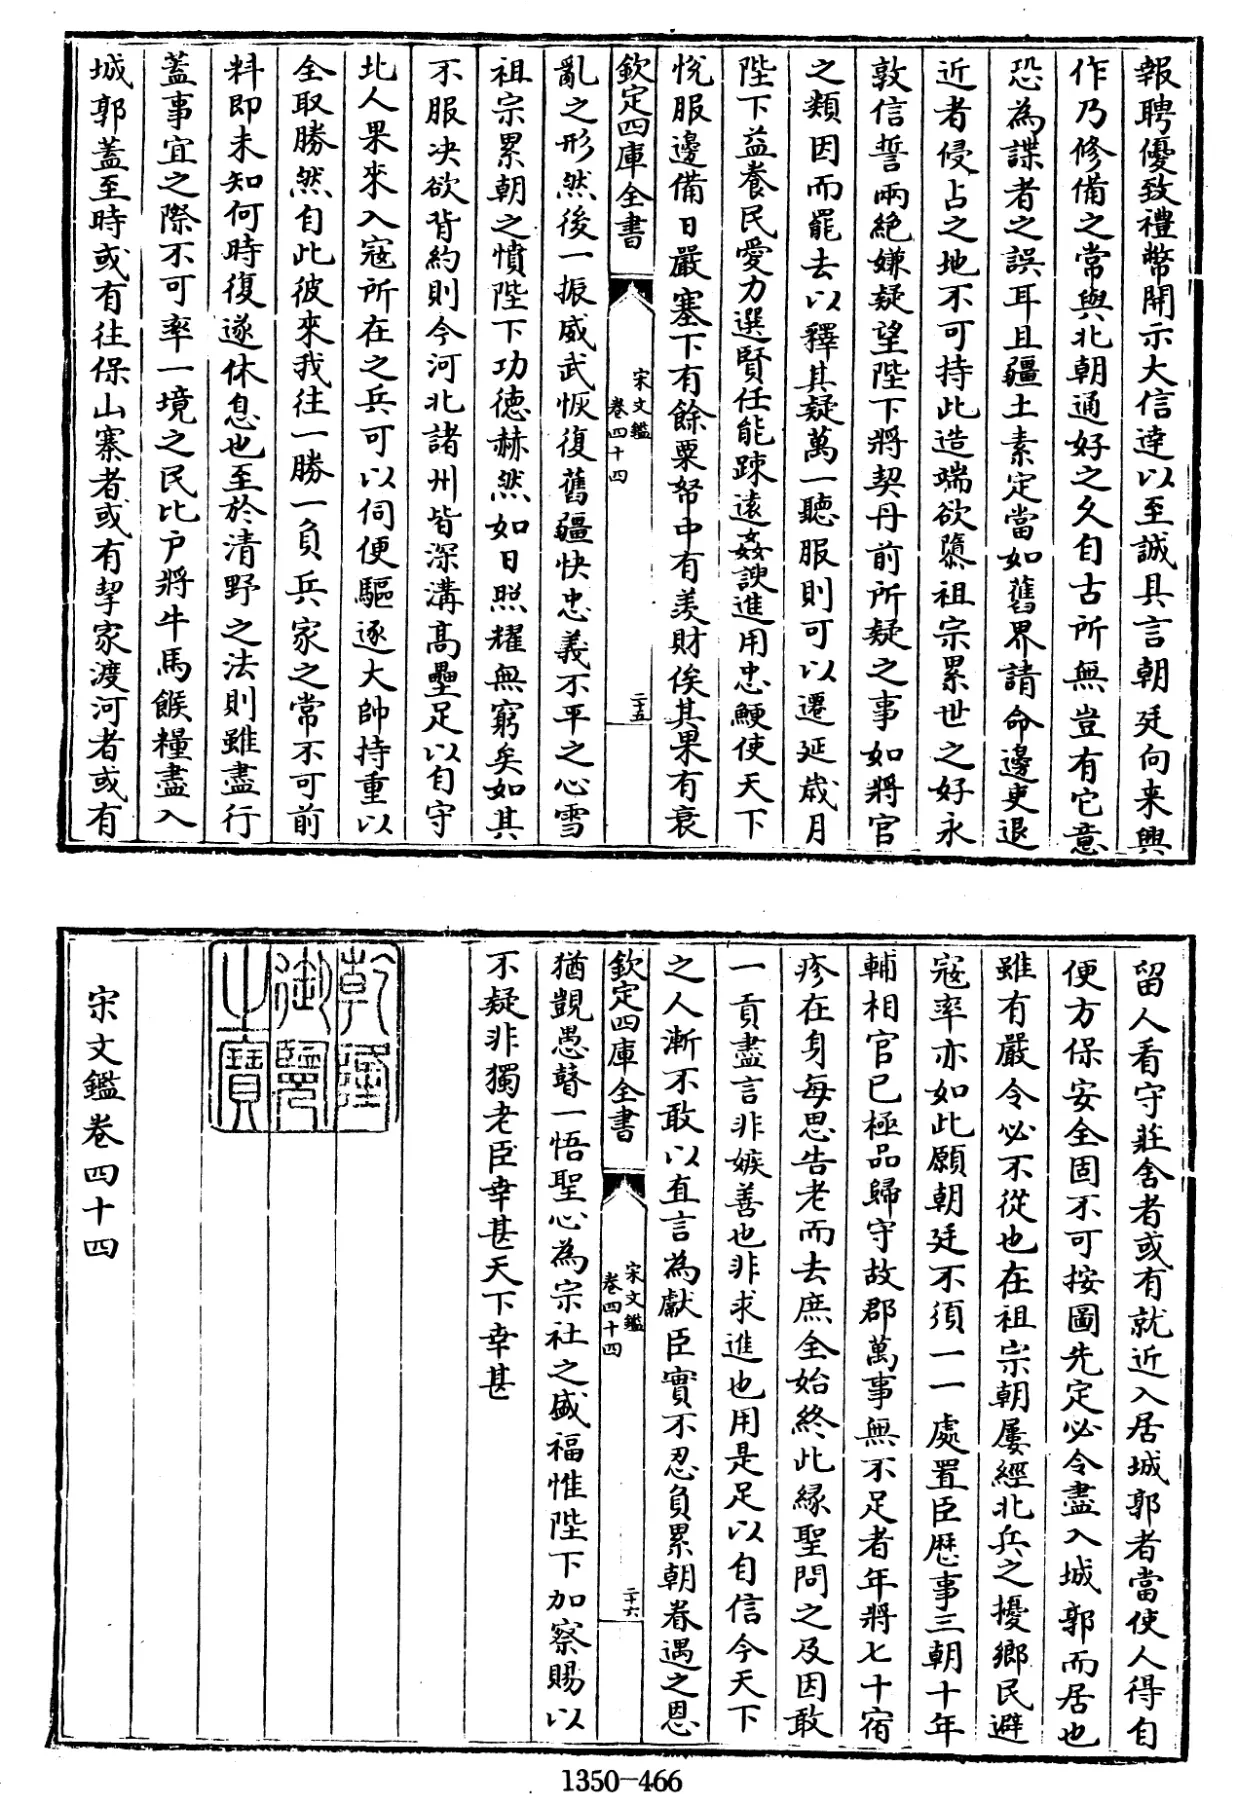 報聘優致禮幣開示大信達以至誠具言朝廷向来興
作乃修備之常與北朝通好之久自古所無豈有它意
恐為諜者之誤耳且疆土素定當如舊界請命邊吏退
近者侵占之地不可持此造端欲隳祖宗累世之好永
敦信誓兩絶嫌疑望陛下將契丹前所疑之事如將官
之類因而罷去以釋其疑萬一聽服則可以遷延歳月
陛下益養民愛力選賢任能踈遠姦諛進用忠鯁使天下
悅服邊備日嚴塞下有餘粟帑中有羡財俟其果有衰
欽定四庫全書
宋文鑑
卷四十四
二十五
亂之形然後一振威武恢復舊疆快忠義不平之心雪
祖宗累朝之憤陛下功徳赫然如日照耀無窮矣如其
不服决欲背約則今河北諸州皆深溝髙壘足以自守
北人果來入寇所在之兵可以伺便驅逐大帥持重以
全取勝然自此彼來我往一勝一負兵家之常不可前
料即未知何時復遂休息也至於清野之法則雖盡行
蓋事宜之際不可率一境之民比户將牛馬餱糧盡入
城郭蓋至時或有往保山寨者或有挈家渡河者或有
留人看守莊舍者或有就近入居城郭者當使人得自
便方保安全固不可按圖先定必令盡入城郭而居也
雖有嚴令必不從也在祖宗朝屢經北兵之擾鄉民避
寇率亦如此願朝廷不須一一處置臣歴事三朝十年
輔相官已極品歸守故郡萬事無不足者年將七十宿
疹在身每思告老而去庶全始終此緣聖問之及因敢
一貢盡言非嫉善也非求進也用是足以自信今天下
之人漸不敢以直言為獻臣實不忍負累朝眷遇之恩
欽定四庫全書
宋文鑑
卷四十四
二十六
猶覬愚瞽一悟聖心為宗社之盛福惟陛下加察賜以
不疑非獨老臣幸甚天下幸甚
乾隆
御覽
之寶
宋文鑑卷四十四
1350-466